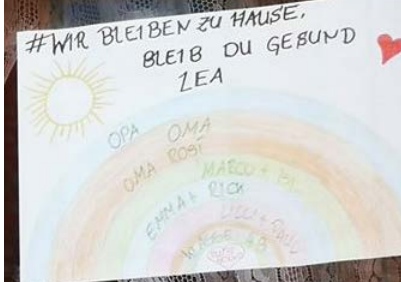 #WIR BLEIBEN ZU HAUSE,
BLEIB DU GESUND
LEA
OPA OMA
OMA ROSI
MARCO +
EMMA + RICK